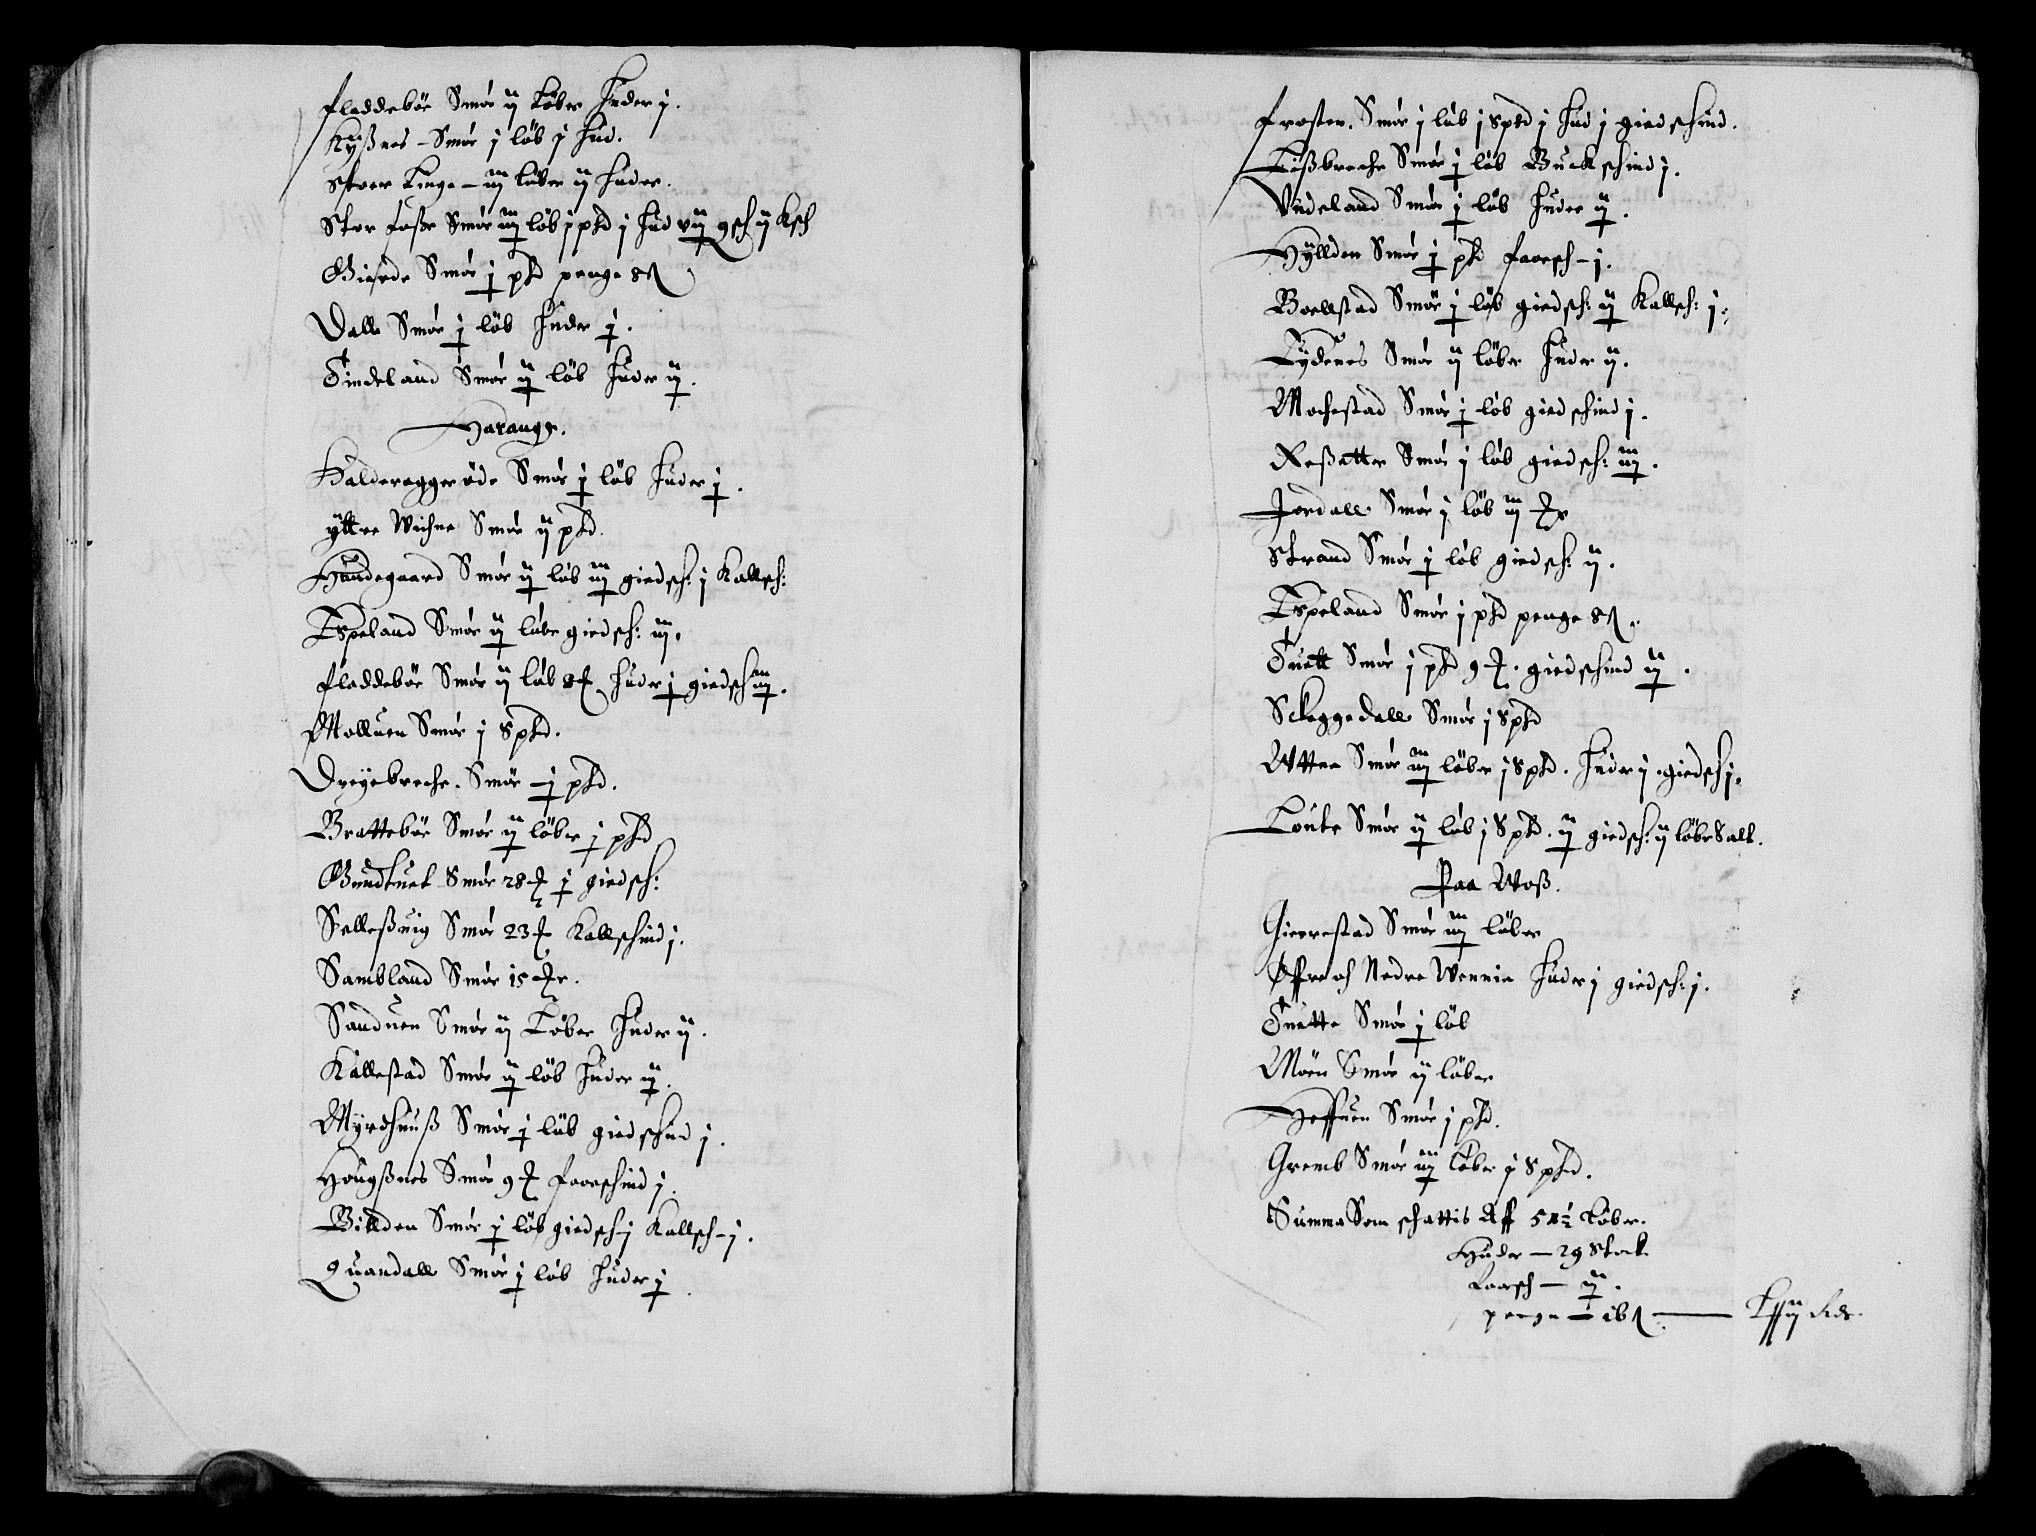 fladdebör Smör ij Löber huder j.
Kyßnes – Smör j löb j hud.
Stoer Linge – iij löber ij huder.
Stor foße Smör iij löb j ptd j hud vij gsch ij Ksch
Gierde Smör j ptd penge 8 ß
Dalle Smör j löb huder j.
Tindeland Smör ij löb huder ij.
Harange.
Halderaggerøde Smör j löb huder j.
yttre Wichne Smör ij ptd.
Haudegaard Smör ij löb iij giedsch: j Kallsch:
Espeland Smör ij löbe giedsch: iij.
fladdebör Smör ij löb 8 huder j giedsch iij.
Molluen Smör j Sptd.
Dreyebreche. Smör – j ptd.
Brattebör Smör ij löber j ptd
Gundtuet Smör 28 j giedsch:
Selleßuig Smör 23 Kallschind j.
Sambland Smör 15
Sanduen Smör ij Löber huder ij.
Kallestad Smör ij löb huder ij.
Myrdhuuß Smör j löb giedschind j.
Hougßnes Smör 9 faarschind j.
Billden Smör j löb giedsch – j Kallsch – j.
Quandall Smör j löb huder j
froster. Smör j löb j Sptd j hud j giedschind.
Tößbreche Smör j löb Buckschind j.
Vndeland Smör j löb huder ij.
Hyllden Smör j ptd faarsch – j.
Boellstad Smör j löb giedsch: ij Kallsch: j.
Eydenes Smör ij löber huder ij.
Mochestad Smör j löb giedschind j.
Reßetter Smör j löb giedsch: iij.
Jordall Smör j löb iij
Strand Smör j löb giedsch: ij.
Espeland Smör j ptd penge 8 ß.
Tuett Smör j ptd 9. giedschind ij.
Sckeggedall Smör j Sptd
Vttne Smör iij löber j Sptd. huder j. giedsch j.
Loute Smör ij löb j Sptd. ij giedsch: ij löbe Sallt.
Paa Woß.
Gierrestad Smör iij löber
Øffre och Nedre Wennie huder j giedsch: j.
Tuette Smör j löb
Möen Smör ij löber
Heffuen Smör j ptd.
Gremb Smör iij Löber j Sptd.
Summa Som schattis Aff 5 Löber.
Huder – 29 Stock
faarsch – ij.
penge – 16 ß